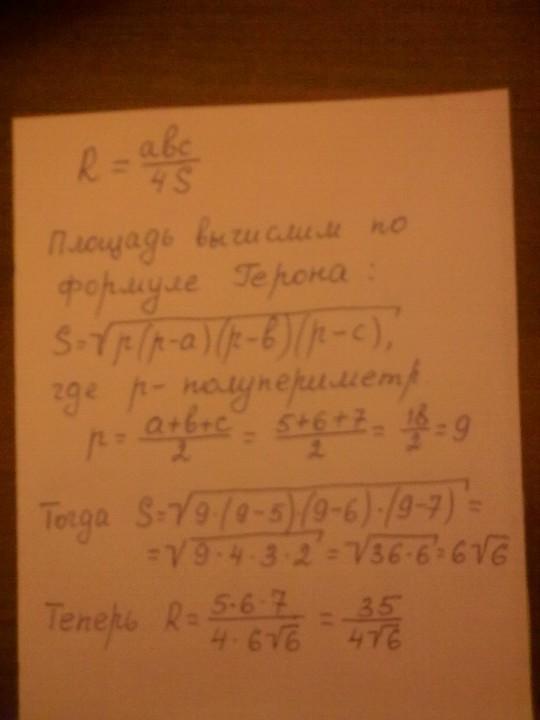 R = abc/4S
Площадь вычислим по
формуле Герона :
S=√p(p-a)(p-b)(p-c),
где p- полупериметр
p = a+b+c/2 = 5+6+7/2 = 18/2 = 9
Тогда S=√9·(9-5)·(9-6)·(9-7) =
=√9·4·3·2 = √36·6 = 6√6
Теперь R = 5·6·7/4·6√6 = 35/4√6